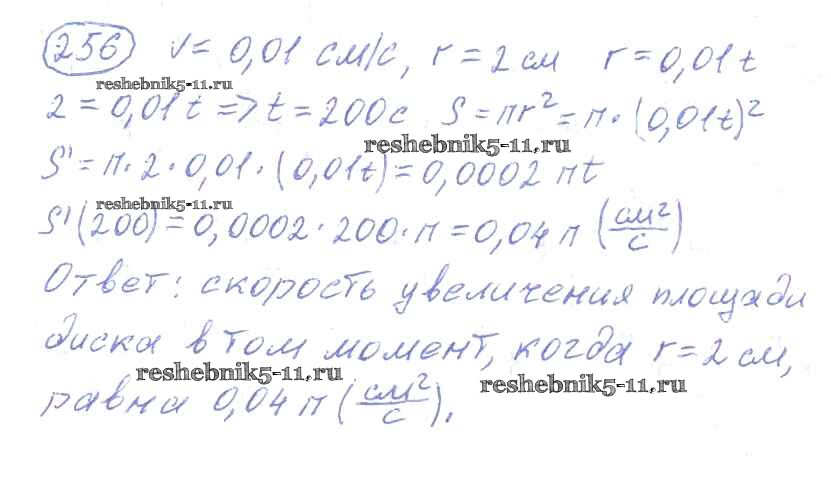 256 v = 0,01 см/с, r = 2 см r = 0,01t
reshebnik5-11.ru
2 = 0,01t => t = 200с S = πr² = π·(0,01t)²
reshebnik5-11.ru
S' = π·2·0,01·(0,01t) = 0,0002πt
reshebnik5-11.ru
S'(200) = 0,0002·200·π = 0,04π (см²/с)
Ответ: скорость увеличения площади
диска в том момент, когда r = 2 см,
reshebnik5-11.ru
reshebnik5-11.ru
равна 0,04π (см²/с).